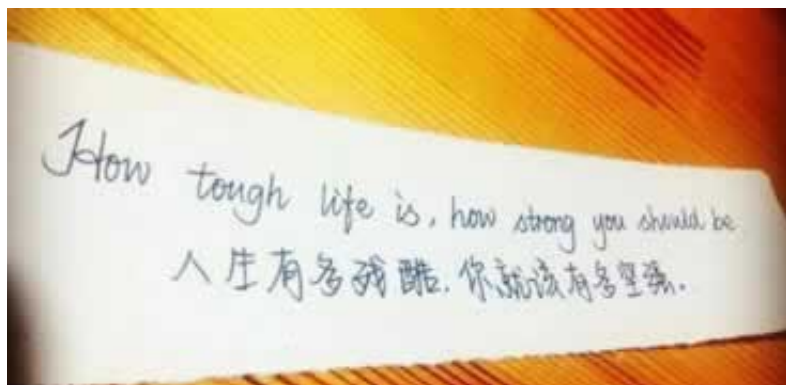 How tough life is, how strong you should be
人生有多残酷.你就该有多坚强.